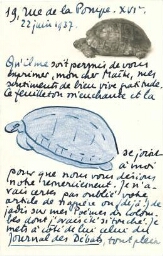 19, rue de la Pompe. XVIe
22 juin 1937.
Qu'il me soit permis de vous
exprimer, mon cher Maître, mes
sentiments de bien vive gratitude.
Le feuilleton m'enchante et la
se joint
à moi
pour que nous vous disions
notre remerciement. Je n'a-
vais pas oublié votre
article de (déjà!) de
jadis sur mes "Poèmes
dont j'avais Je
mets à côté de lui celui du
Journal des Débats, tout plein